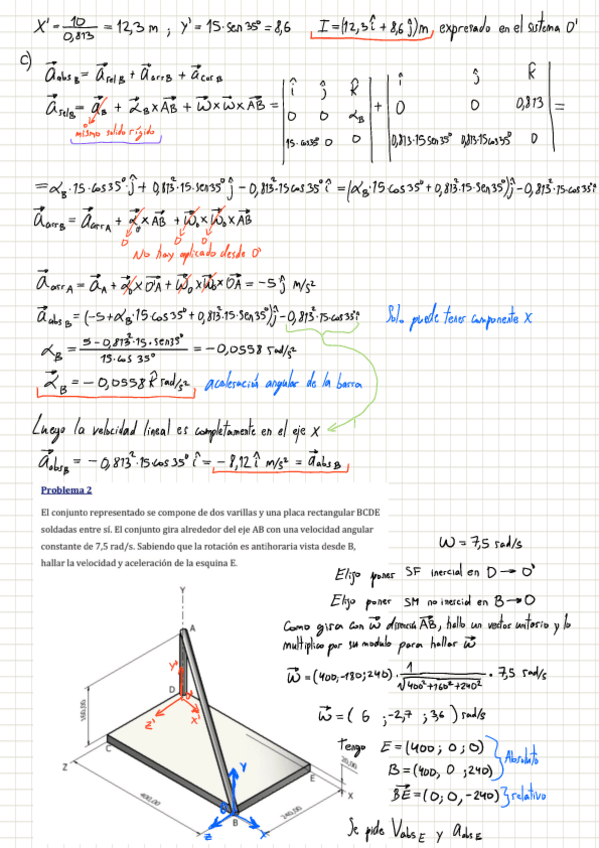 X' = 10/0,813 = 12,3 m ; Y' = 15·sen35° = 8,6 I = (12,3î + 8,6ĵ)m, expresado en el sistema O'
c) a⃗absB = a⃗relB + a⃗arrB + a⃗corB
a⃗relB = a⃗B + α⃗B × AB + ω⃗ × ω⃗ × AB = | î ĵ k̂ ; 0 0 αB ; 15·cos35° 0 0 | + | î ĵ k̂ ; 0 0 0,813 ; 0,813·15sen35° 0,813·15cos35° 0 | =
0
mismo solido rígido
= αB·15·cos35° ĵ + 0,813²·15·sen35° ĵ - 0,813²·15cos35° î = (αB·15cos35° + 0,813²·15sen35°)ĵ - 0,813²·15·cos35° î
a⃗arrB = a⃗arrA + α⃗0 × AB + ω⃗0 × ω⃗0 × AB
0 0 0
No hay aplicado desde O'
a⃗arrA = a⃗A + α⃗0 × O'A + ω⃗0 × ω⃗0 × OA = -5 ĵ m/s²
a⃗absB = (-5 + αB·15cos35° + 0,813²·15sen35°)ĵ - 0,813²·15·cos35° î Solo puede tener componente X
αB = 5 - 0,813²·15·sen35° / 15·cos 35° = -0,0558 rad/s²
α⃗B = -0,0558 k̂ rad/s² aceleración angular de la barra
Luego la velocidad lineal es completamente en el eje X
a⃗absB = -0,813²·15cos35° î = -8,12 î m/s² = a⃗absB
Problema 2
El conjunto representado se compone de dos varillas y una placa rectangular BCDE
soldadas entre sí. El conjunto gira alrededor del eje AB con una velocidad angular
constante de 7,5 rad/s. Sabiendo que la rotación es antihoraria vista desde B,
hallar la velocidad y aceleración de la esquina E.
ω = 7,5 rad/s
Elijo poner SF inercial en D → O'
Elijo poner SM no inercial en B → O
Como gira con ω⃗ dirección AB, hallo un vector unitario y lo
multiplico por su modulo para hallar ω⃗
ω⃗ = (400,-180,240) · 1/√400²+160²+240² · 7,5 rad/s
ω⃗ = ( 6 ; -2,7 ; 3,6 ) rad/s
Tengo E = (400 ; 0 ; 0)
B = (400, 0 ; 240)
Absoluto
BE = (0; 0, -240) relativo
Se pide VabsE y aabsE
Y
A
Y'
D
O'
Z'
X'
160,00
C
Z
Y
E
20,00
X
400,00
240,00
O
Z
B
X